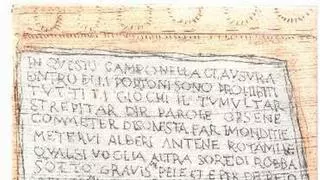 IN QUESTO CAMPO NELLA CLAVSVRA
ENTRO DELLI POSTONI SONO PROHIBITI
TVTTI TI GIOCHI IL TVMVLTAR
STREPITAR DIR PAROLE OBSENE
COMMETTER DISONESTA FAR IMONDITIE
METERVI ALBERI ANTENE ROTAMI
QVALSIVOGLIA ALTRA SORTE DI ROBBA
SOTTO GRAVIS PELE ET PER DECRETO